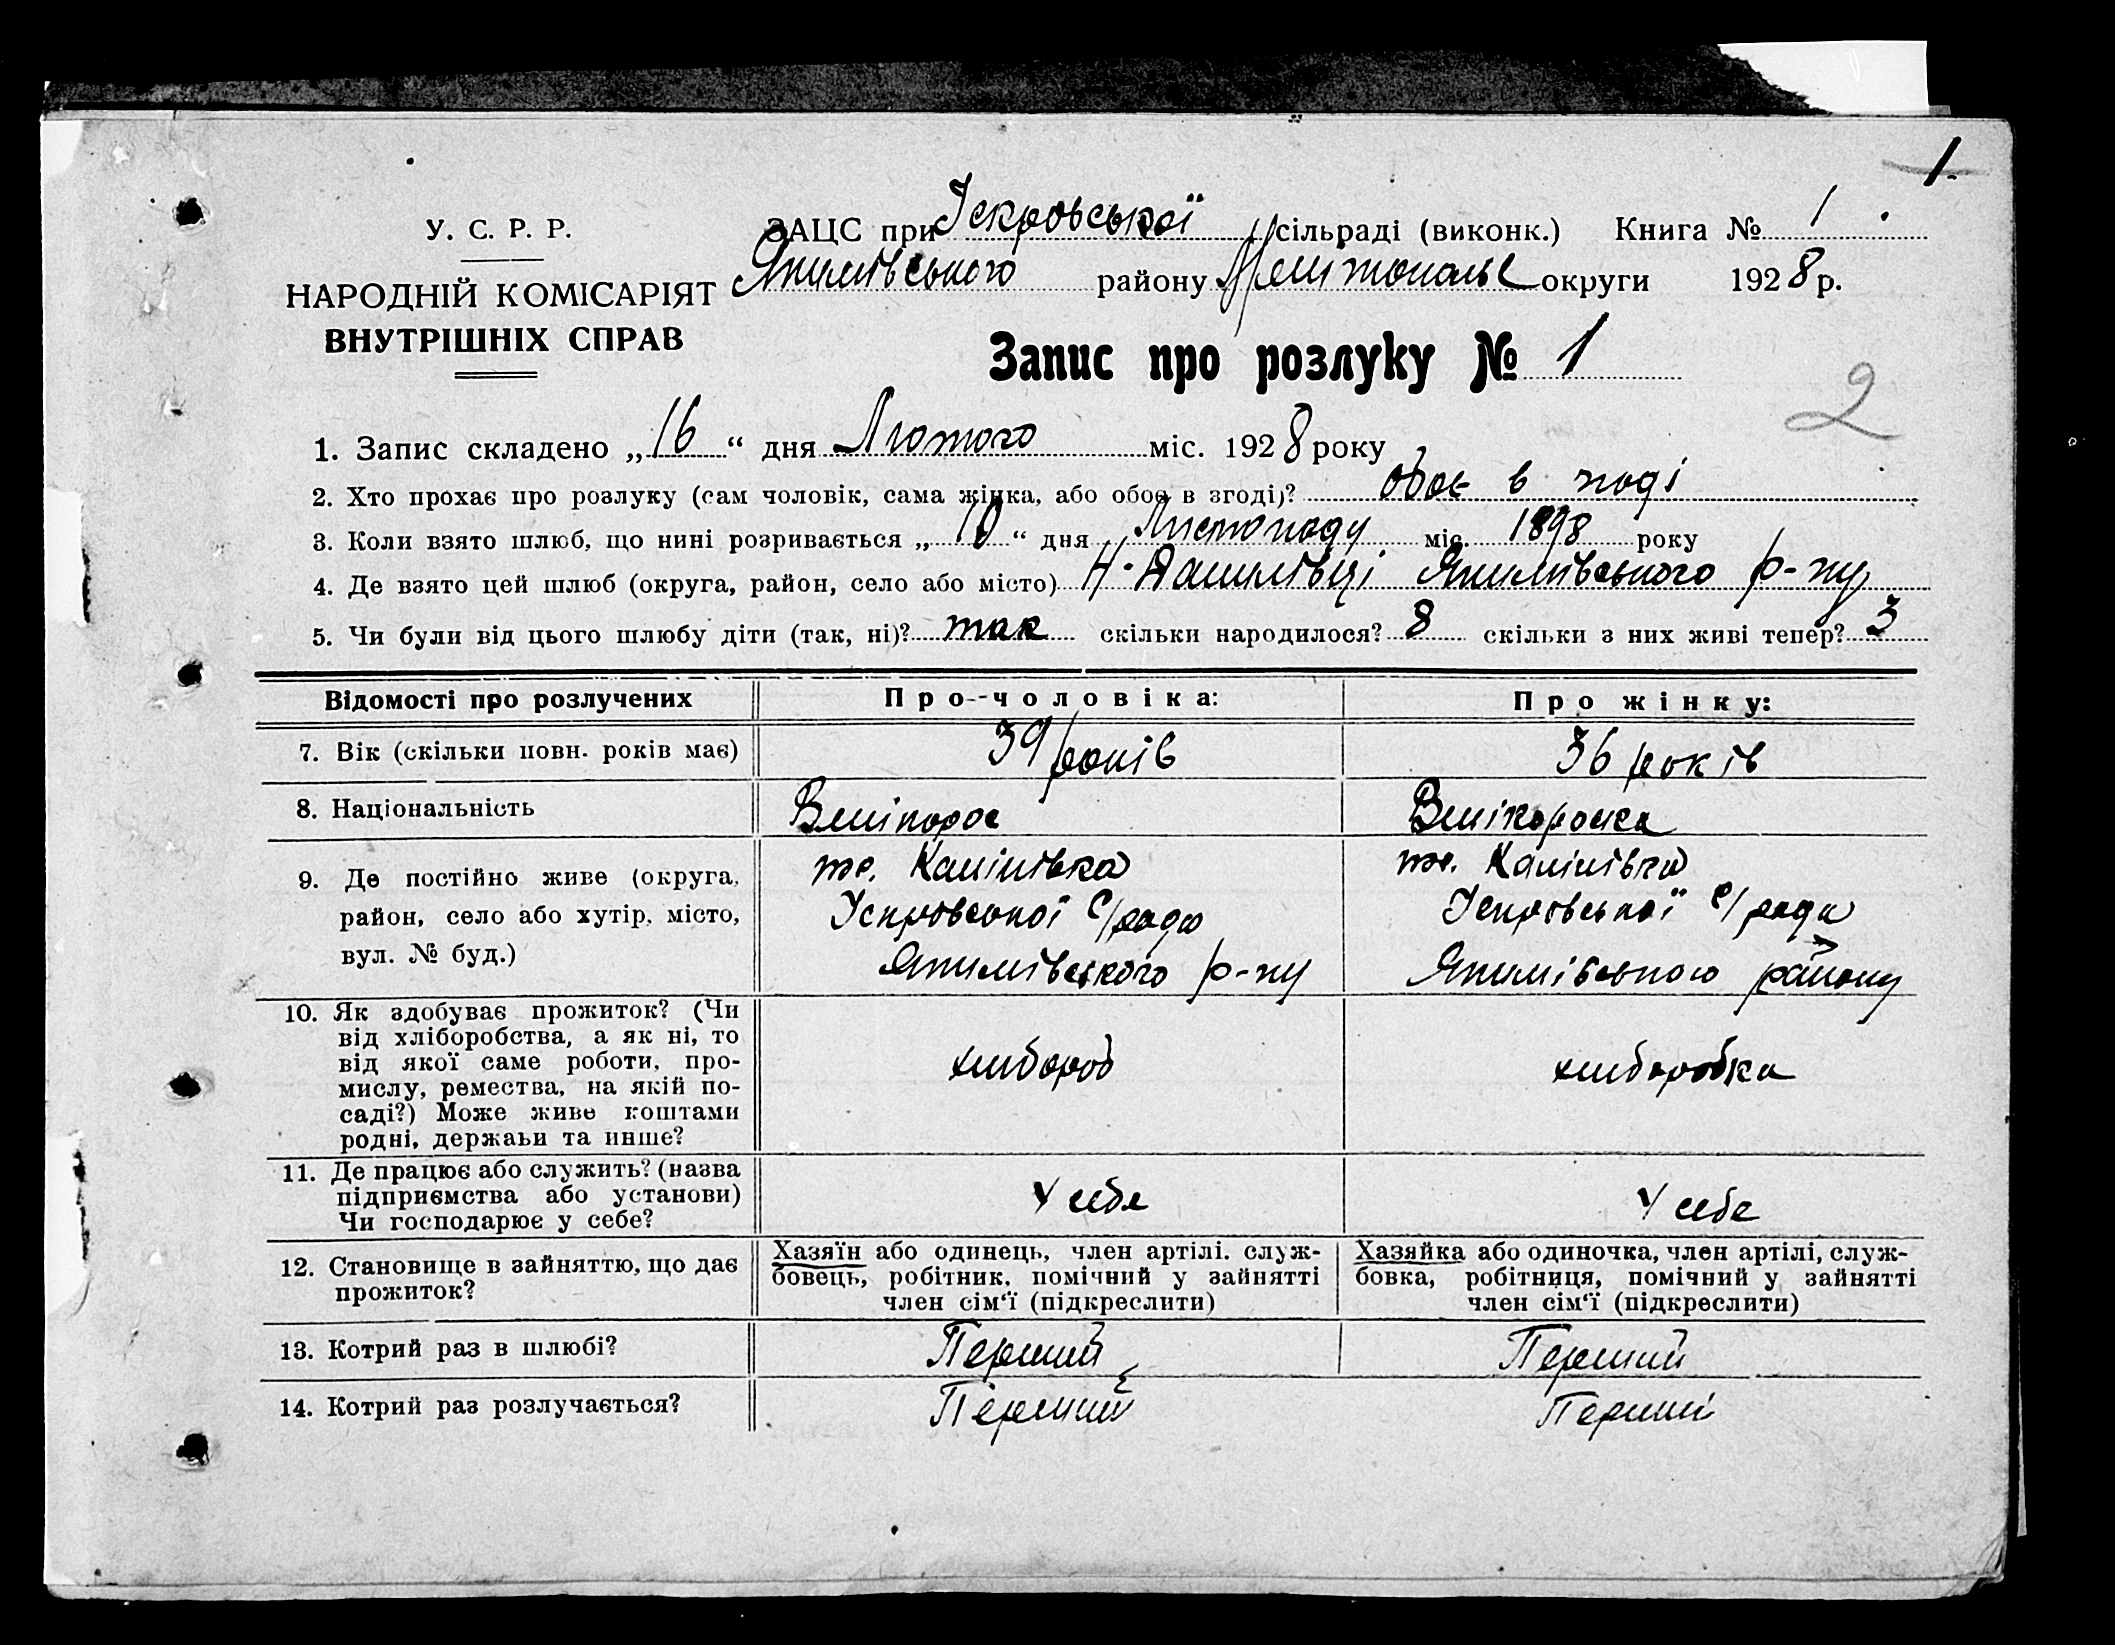 1.
У. С. Р. Р.
НАРОДНІЙ КОМІСАРІЯТ
ВНУТРІШНІХ СПРАВ
ЗАЦС при Іскровської сільраді (виконк.) Книга № 1
Якимівського району Мелітопальс округи 1928 р.
Запис про розлуку № 1
2
1. Запис складено „16“ дня Лютого міс. 1928 року
2. Хто прохає про розлуку (сам чоловік, сама жінка, або обоє в згоді)? обоє в
3. Коли взято шлюб, що нині розривається „10“ дня Листопаду міс. 1898 року
4. Де взято цей шлюб (округа, район, село або місто) Якимівського р-ну
5. Чи були від цього шлюбу діти (так, ні)? так скільки народилося? 8 скільки з них живі тепер? 3
Відомості про розлучених
Про-чоловіка:
Про жінку:
7. Вік (скільки повн. років має)
39 років
36 років
8. Національність
Велікорос
Велікороска
9. Де постійно живе (округа,
район, село або хутір, місто,
вул. № буд.)
Калінівка
Іскровської с/рада
Якимівського р-ну
Калінівка
Іскровської с/рада
Якимівського району
10. Як здобуває прожиток? (Чи
від хліборобства, а як ні, то
від якої саме роботи, про-
мислу, ремества, на якій по-
саді?) Може живе коштами
родні, держави та инше?
хлибороб
хлиборобка
11. Де працює або служить? (назва
підприємства або установи)
Чи господарює у себе?
У себе
У себе
12. Становище в зайняттю, що дає
прожиток?
Хазяїн або одинець, член артілі. служ-
бовець, робітник, помічний у зайнятті
член сім‘ї (підкреслити)
Хазяйка або одиночка, член артілі, служ-
бовка, робітниця, помічний у зайнятті
член сім‘ї (підкреслити)
13. Котрий раз в шлюбі?
Перший
Перший
14. Котрий раз розлучається?
Перший
Перший